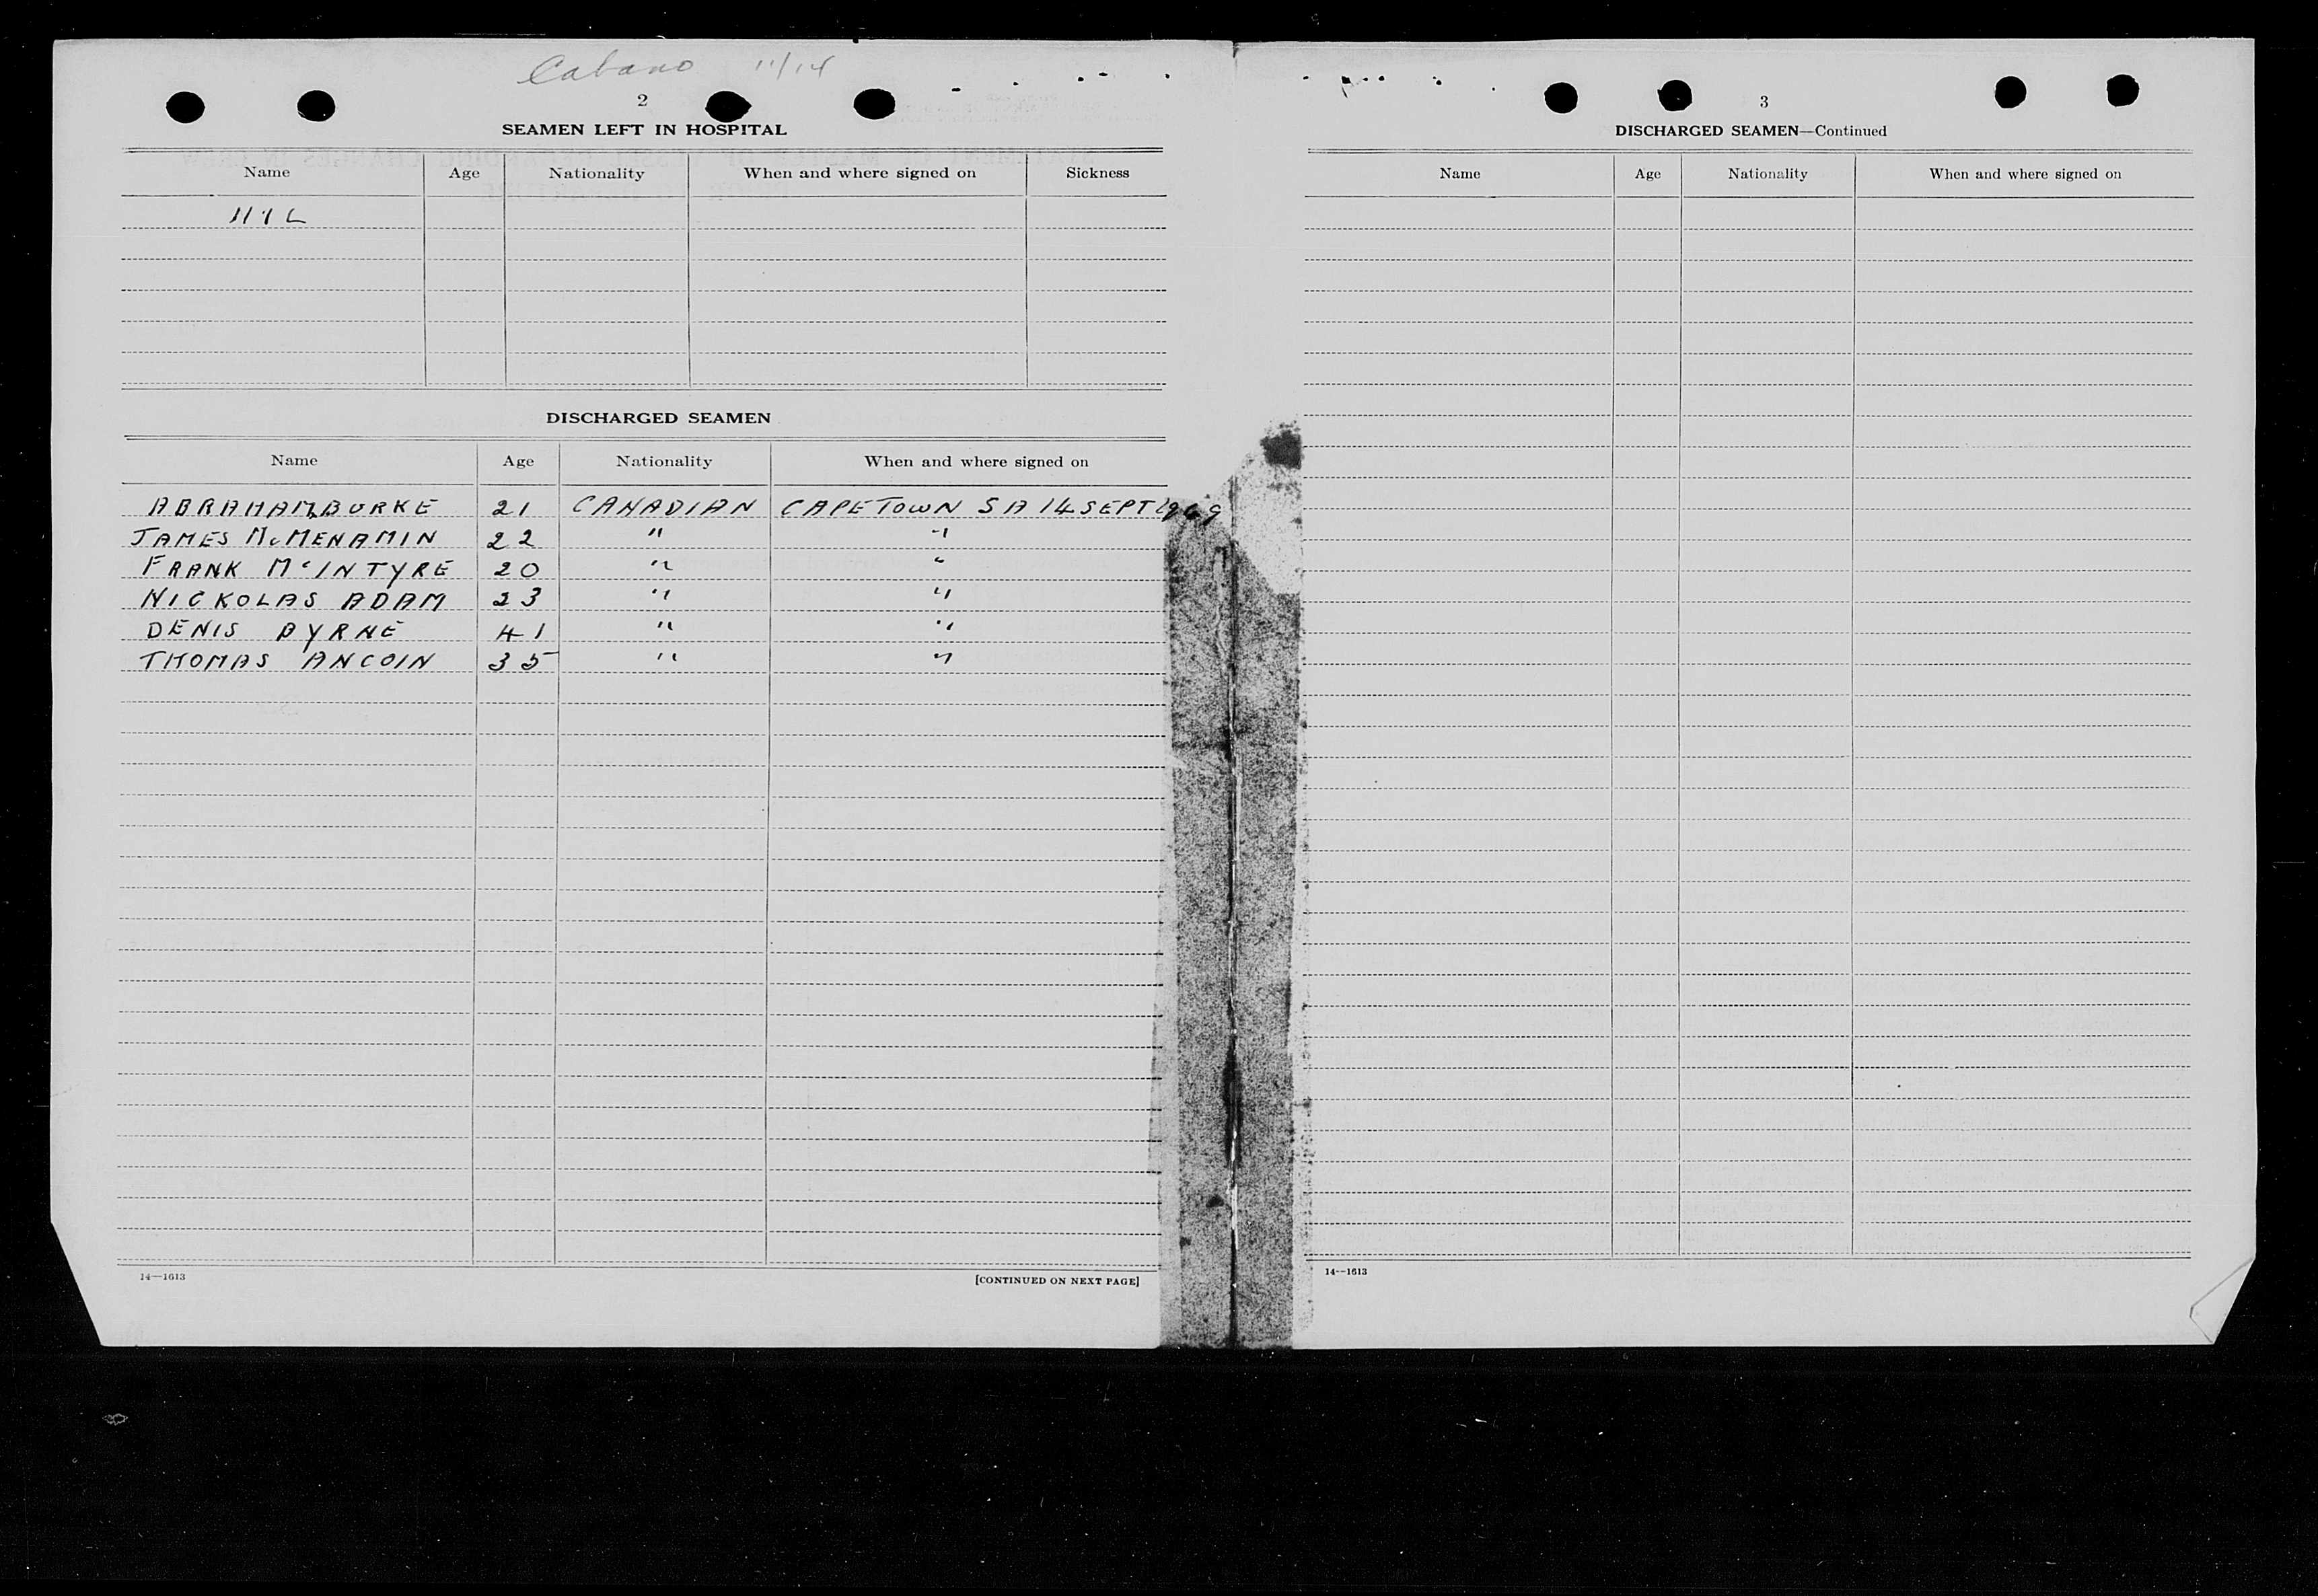 Cabano 11/14
2
SEAMEN LEFT IN HOSPITAL
Name Age Nationality When and where signed on Sickness
NIL
DISCHARGED SEAMEN
Name Age Nationality When and where signed on
ABRAHAM BURKE 21 CANADIAN CAPETOWN S A 14 SEPT
JAMES McMENAMIN 22 " "
FRANK McINTYRE 20 " "
NICKOLAS ADAM 23 " "
DENIS BYRNE 41 " "
THOMAS ANCOIN 35 " "
14—1613 [CONTINUED ON NEXT PAGE]
3
DISCHARGED SEAMEN—Continued
Name Age Nationality When and where signed on
14—1613